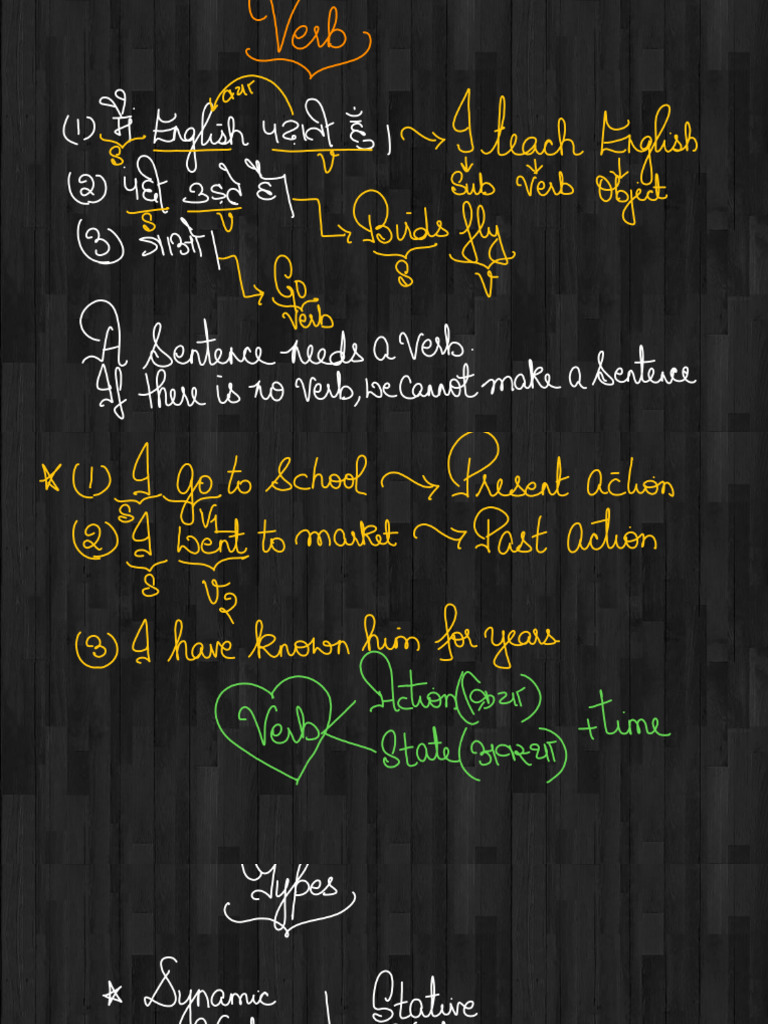 Verb
(1) मैं English पढ़ाती हूँ। → I teach English
क्या
S V Sub Verb Object
(2) पक्षी उड़ते हैं। → Birds fly
S V S V
(3) जाओ। → Go
Verb
A Sentence needs a verb.
If there is no verb, we cannot make a sentence
* (1) I go to School → Present action
S V1
(2) I went to market → Past action
S V2
(3) I have known him for years
Verb Action (क्रिया)
State (अवस्था) + time
Types
* Dynamic | Stative